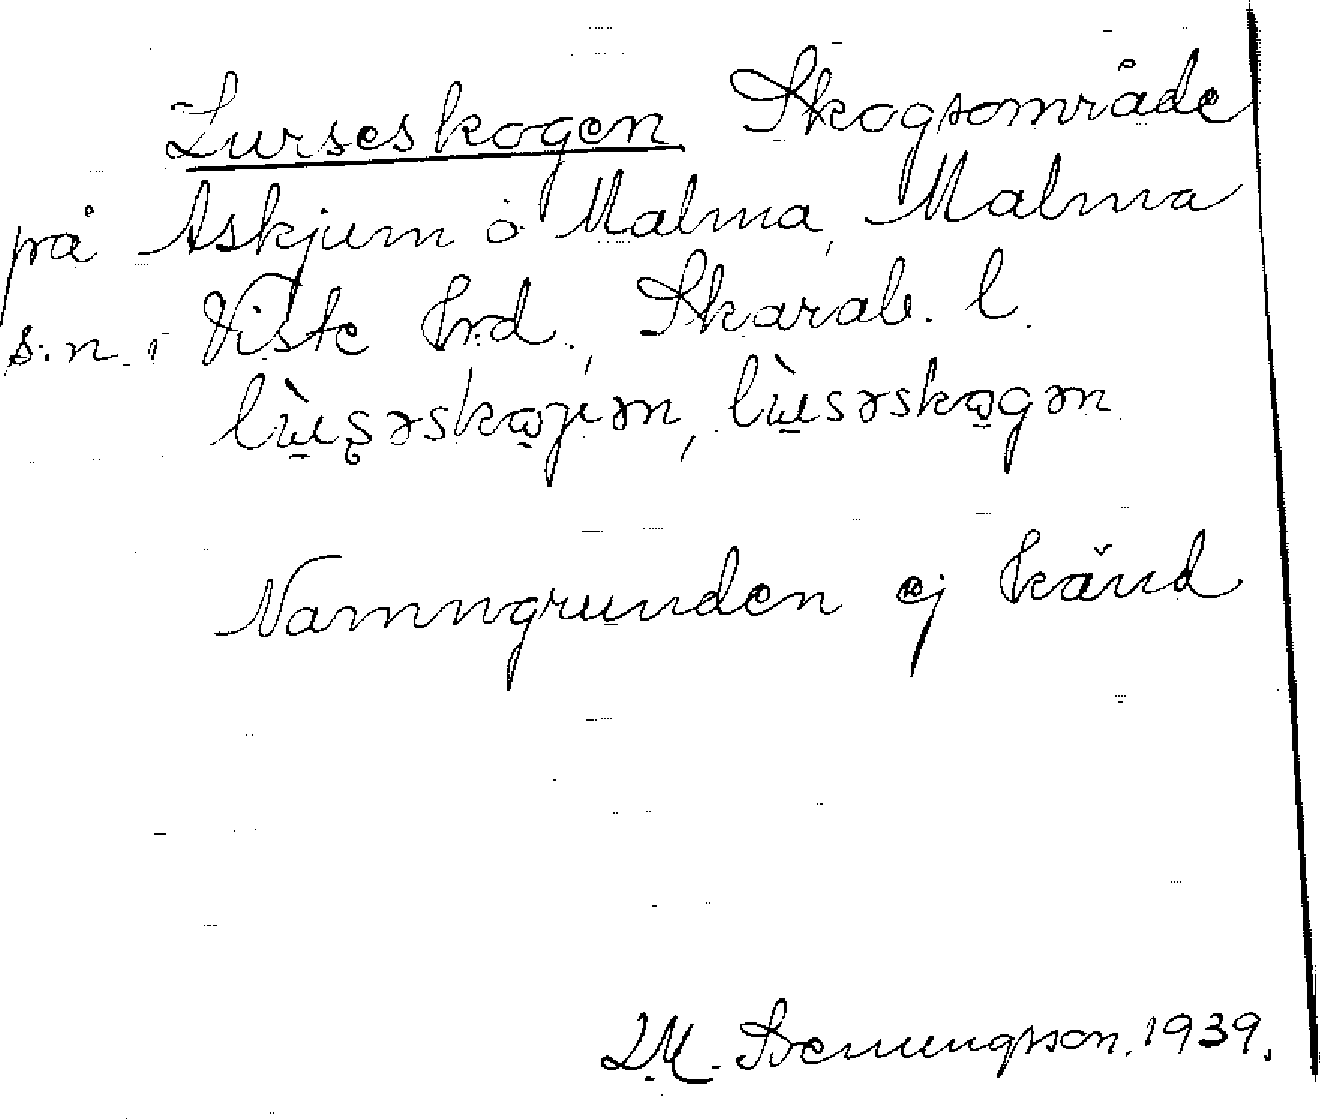 Lurseskogen Skogsområde
på Askjum o Malma, Malma
s:n i Viste hrd., Skarab. l.
lùsəskojən, lùsəskogən
Namngrunden ej känd
1939.